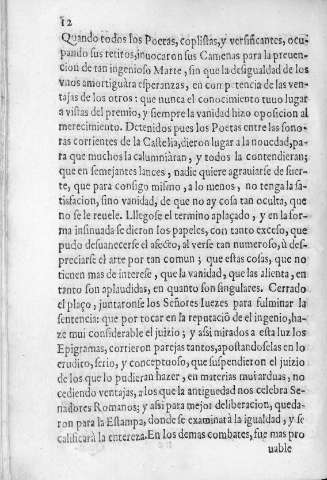 12
Quando todos los Poetas, coplistas, y versificantes, ocu-
pando sus retiros, inuocaron sus Camenas para la preuen-
cion de tan ingenioso Marte, sin que la desigualdad de los
vnos amortiguàra esperanzas, en competencia de las ven-
tajas de los otros: que nunca el conocimiento tuuo lugar
a vistas del premio, y siempre la vanidad hizo oposicion al
merecimiento. Detenidos pues los Poetas entre las sono-
ras corrientes de la Castelia, dieron lugar a la nouedad, pa-
ra que muchos la calumniàran, y todos la contendieran;
que en semejantes lances, nadie quiere agrauiarse de suer-
te, que para consigo mismo, a lo menos, no tenga la sa-
tisfacion, sino vanidad, de que no ay cosa tan oculta, que
no se le reuele. Lllegose el termino aplaçado, y en la for-
ma insinuada se dieron los papeles, con tanto exceso, que
pudo desuanecerse el afecto, al verse tan numeroso, ù des-
preciarse el arte por tan comun; que estas cosas, que no
tienen mas de interese, que la vanidad, que las alienta, en
tanto son aplaudidas, en quanto son singulares. Cerrado
el plaço, juntaronse los Señores Iuezes para fulminar la
sentencia: que por tocar en la reputaciõ de el ingenio, ha-
ze mui considerable el juizio; y assi mirados a esta luz los
Epigramas, cortieron parejas tantos, apostandoselas en lo
erudito, serio, y conceptuoso, que suspendieron el juizio
de los que lo pudieran hazer, en materias mui arduas, no
cediendo ventajas, a los que la antiguedad nos celebra Se-
nadores Romanos; y assi para mejor deliberacion, queda-
ron para la Estampa, donde se examinarà la igualdad, y se
calificarà la entereza. En los demas combates, fue mas pro
uable